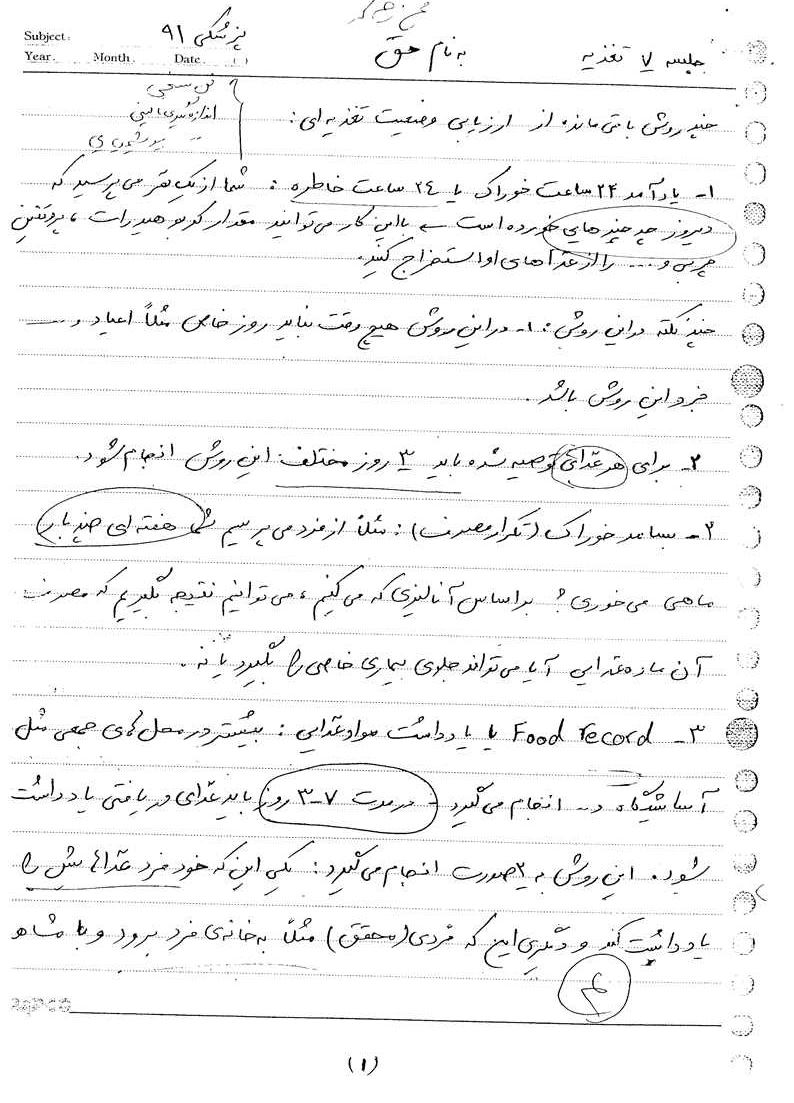 پزشکی ۹۱
Subject:
Year. Month Date ( )
به نام حق
جلسه ۷ تغذیه
تن سنجی
اندازه‌گیری بالینی
بیوشیمیایی
چند روش باقی مانده از ارزیابی وضعیت تغذیه‌ای:
۱- یادآمد ۲۴ ساعت خوراک یا ۲۴ ساعت خاطره: شما از یک نفر می‌پرسید که
دیروز چه چیزهایی خورده است ← با این کار می‌توانید مقدار کربوهیدرات، پروتئین
چربی و ... را از غذاهای او استخراج کنید.
چند نکته در این روش: ۱- در این روش هیچ وقت نباید روز خاص مثلاً اعیاد و ...
جزو این روش باشد.
۲- برای هر غذایی توصیه شده باید ۳ روز مختلف این روش انجام شود.
۲- بسامد خوراک (تکرار مصرف): مثلاً از فرد می‌پرسیم شما هفته‌ای چند بار
ماهی می‌خوری؟ براساس آنالیزی که می‌کنیم، می‌توانیم نتیجه بگیریم که مصرف
آن ماده غذایی آیا می‌تواند جلوی بیماری خاصی را بگیرد یا نه.
۳- Food record یا یادداشت مواد غذایی: بیشتر در محل‌های جمعی مثل
آسایشگاه و... انجام می‌گیرد - در مدت ۷-۳ روز باید غذای دریافتی یادداشت
شود. این روش به ۲ صورت انجام می‌گیرد: یکی این که خود فرد غذاهایش را
یادداشت کند و دیگری این که فردی (محقق) مثلاً به خانه‌ی فرد برود و با مشاهده
(۱)